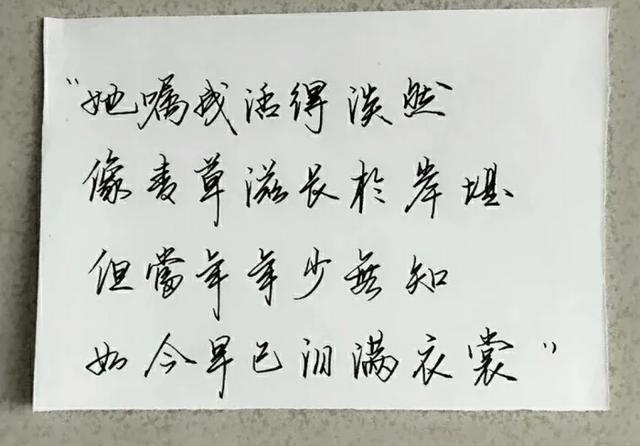 “她嘱我活得淡然
像麦草滋长於岸堤
但當年年少無知
如今早已泪满衣裳”